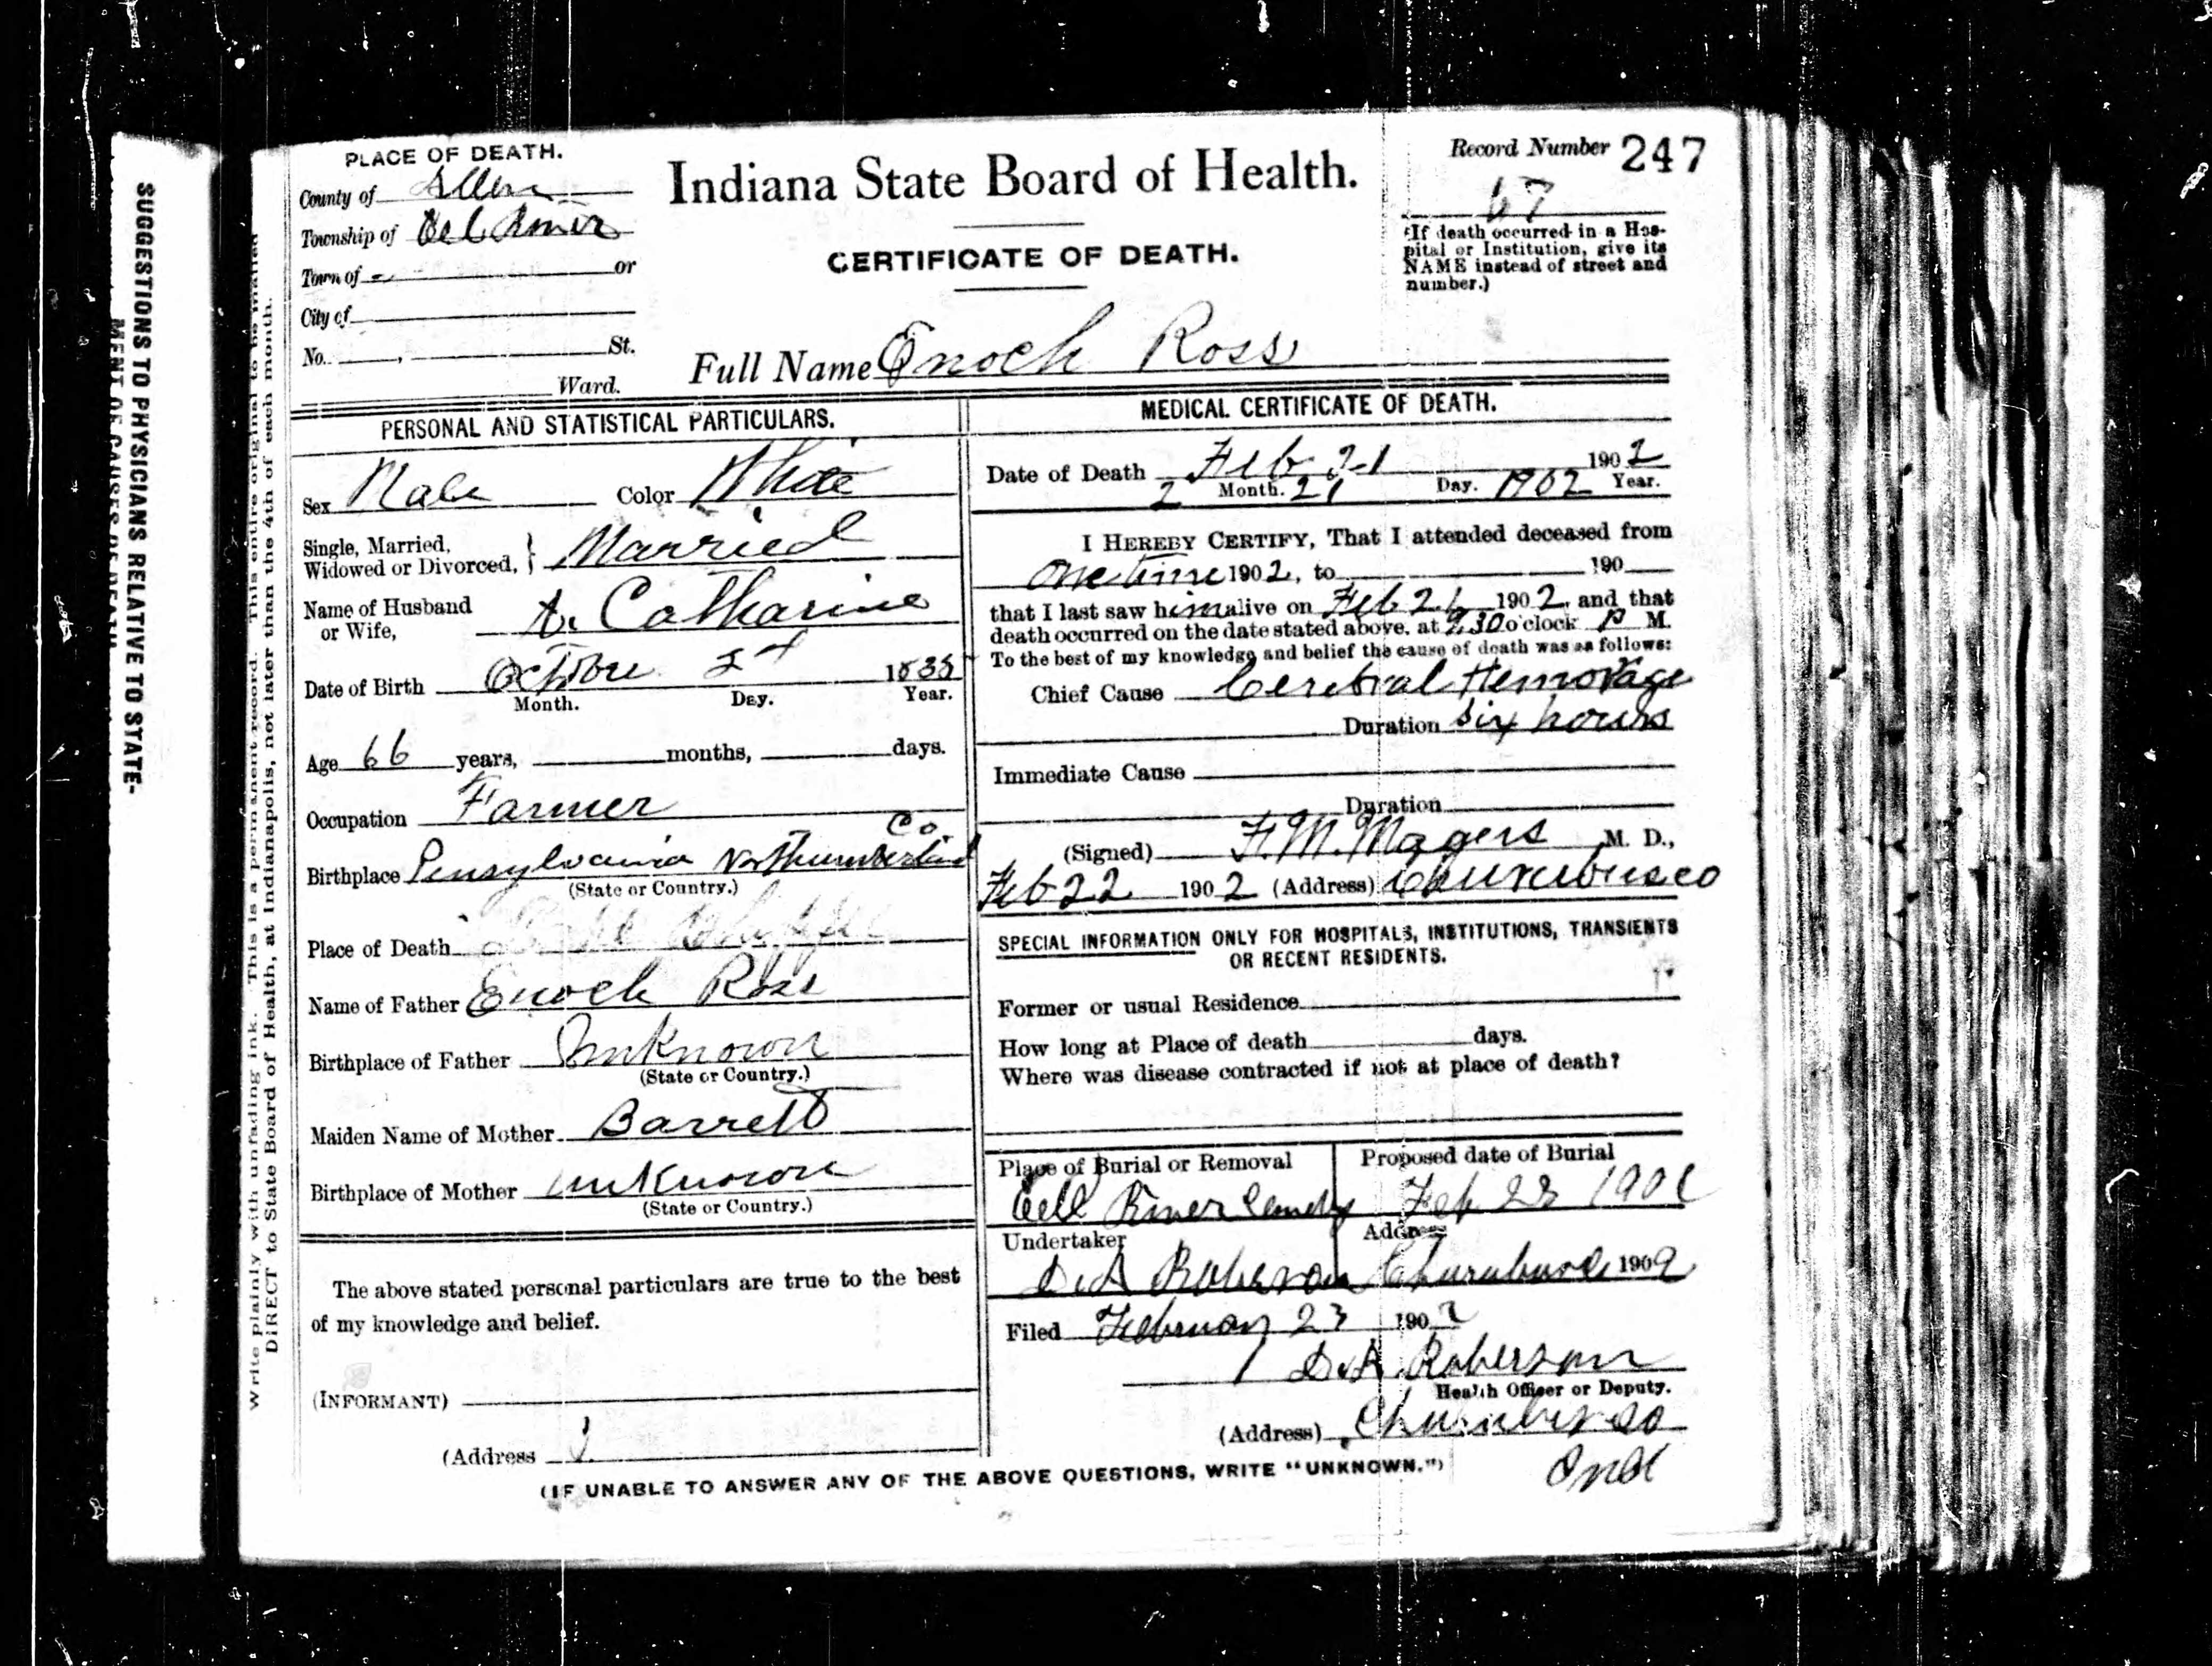 SUGGESTIONS TO PHYSICIANS RELATIVE TO STATE-
MENT OF CAUSES OF DEATH
Write plainly with unfading ink. This is a permanent record. This entire original to be mailed
DIRECT to State Board of Health, at Indianapolis, not later than the 4th of each month.
PLACE OF DEATH.
County of Allen
Township of Eel River
Town of or
City of
No. St.
Ward.
Indiana State Board of Health.
CERTIFICATE OF DEATH.
Record Number 247
67
(If death occurred in a Hos-
pital or Institution, give its
NAME instead of street and
number.)
Full Name Enoch Ross
PERSONAL AND STATISTICAL PARTICULARS.
Sex Male Color White
Single, Married,
Widowed or Divorced, } Married
Name of Husband
or Wife, A. Catharine
Date of Birth Octobre 1835
Month. Day. Year.
Age 66 years, months, days.
Occupation Farmer
Co.
Birthplace Pensylvania Northumberland
(State or Country.)
Place of Death
Name of Father Enoch Ross
Birthplace of Father Unknown
(State or Country.)
Maiden Name of Mother Barrett
Birthplace of Mother unknown
(State or Country.)
The above stated personal particulars are true to the best
of my knowledge and belief.
(INFORMANT)
(Address
MEDICAL CERTIFICATE OF DEATH.
Date of Death Feb 21 1902
2 Month. 21 Day. 1902 Year.
I HEREBY CERTIFY, That I attended deceased from
One time 1902, to 190
that I last saw him alive on Feb 21 1902, and that
death occurred on the date stated above, at 9,30 o'clock P M.
To the best of my knowledge and belief the cause of death was as follows:
Chief Cause Cerebral Hemorage
Duration six hours
Immediate Cause
Duration
(Signed) F. M. Magers M. D.,
Feb 22 1902 (Address) Churubusco
SPECIAL INFORMATION ONLY FOR HOSPITALS, INSTITUTIONS, TRANSIENTS
OR RECENT RESIDENTS.
Former or usual Residence
How long at Place of death days.
Where was disease contracted if not at place of death?
Place of Burial or Removal Proposed date of Burial
Eel River Feb 23 190
Undertaker Address
D. A. Roberson Churubusco 190
Filed February 23 1902
D. A. Roberson
Health Officer or Deputy.
(Address) Churubusco
Ind
(IF UNABLE TO ANSWER ANY OF THE ABOVE QUESTIONS, WRITE "UNKNOWN.")